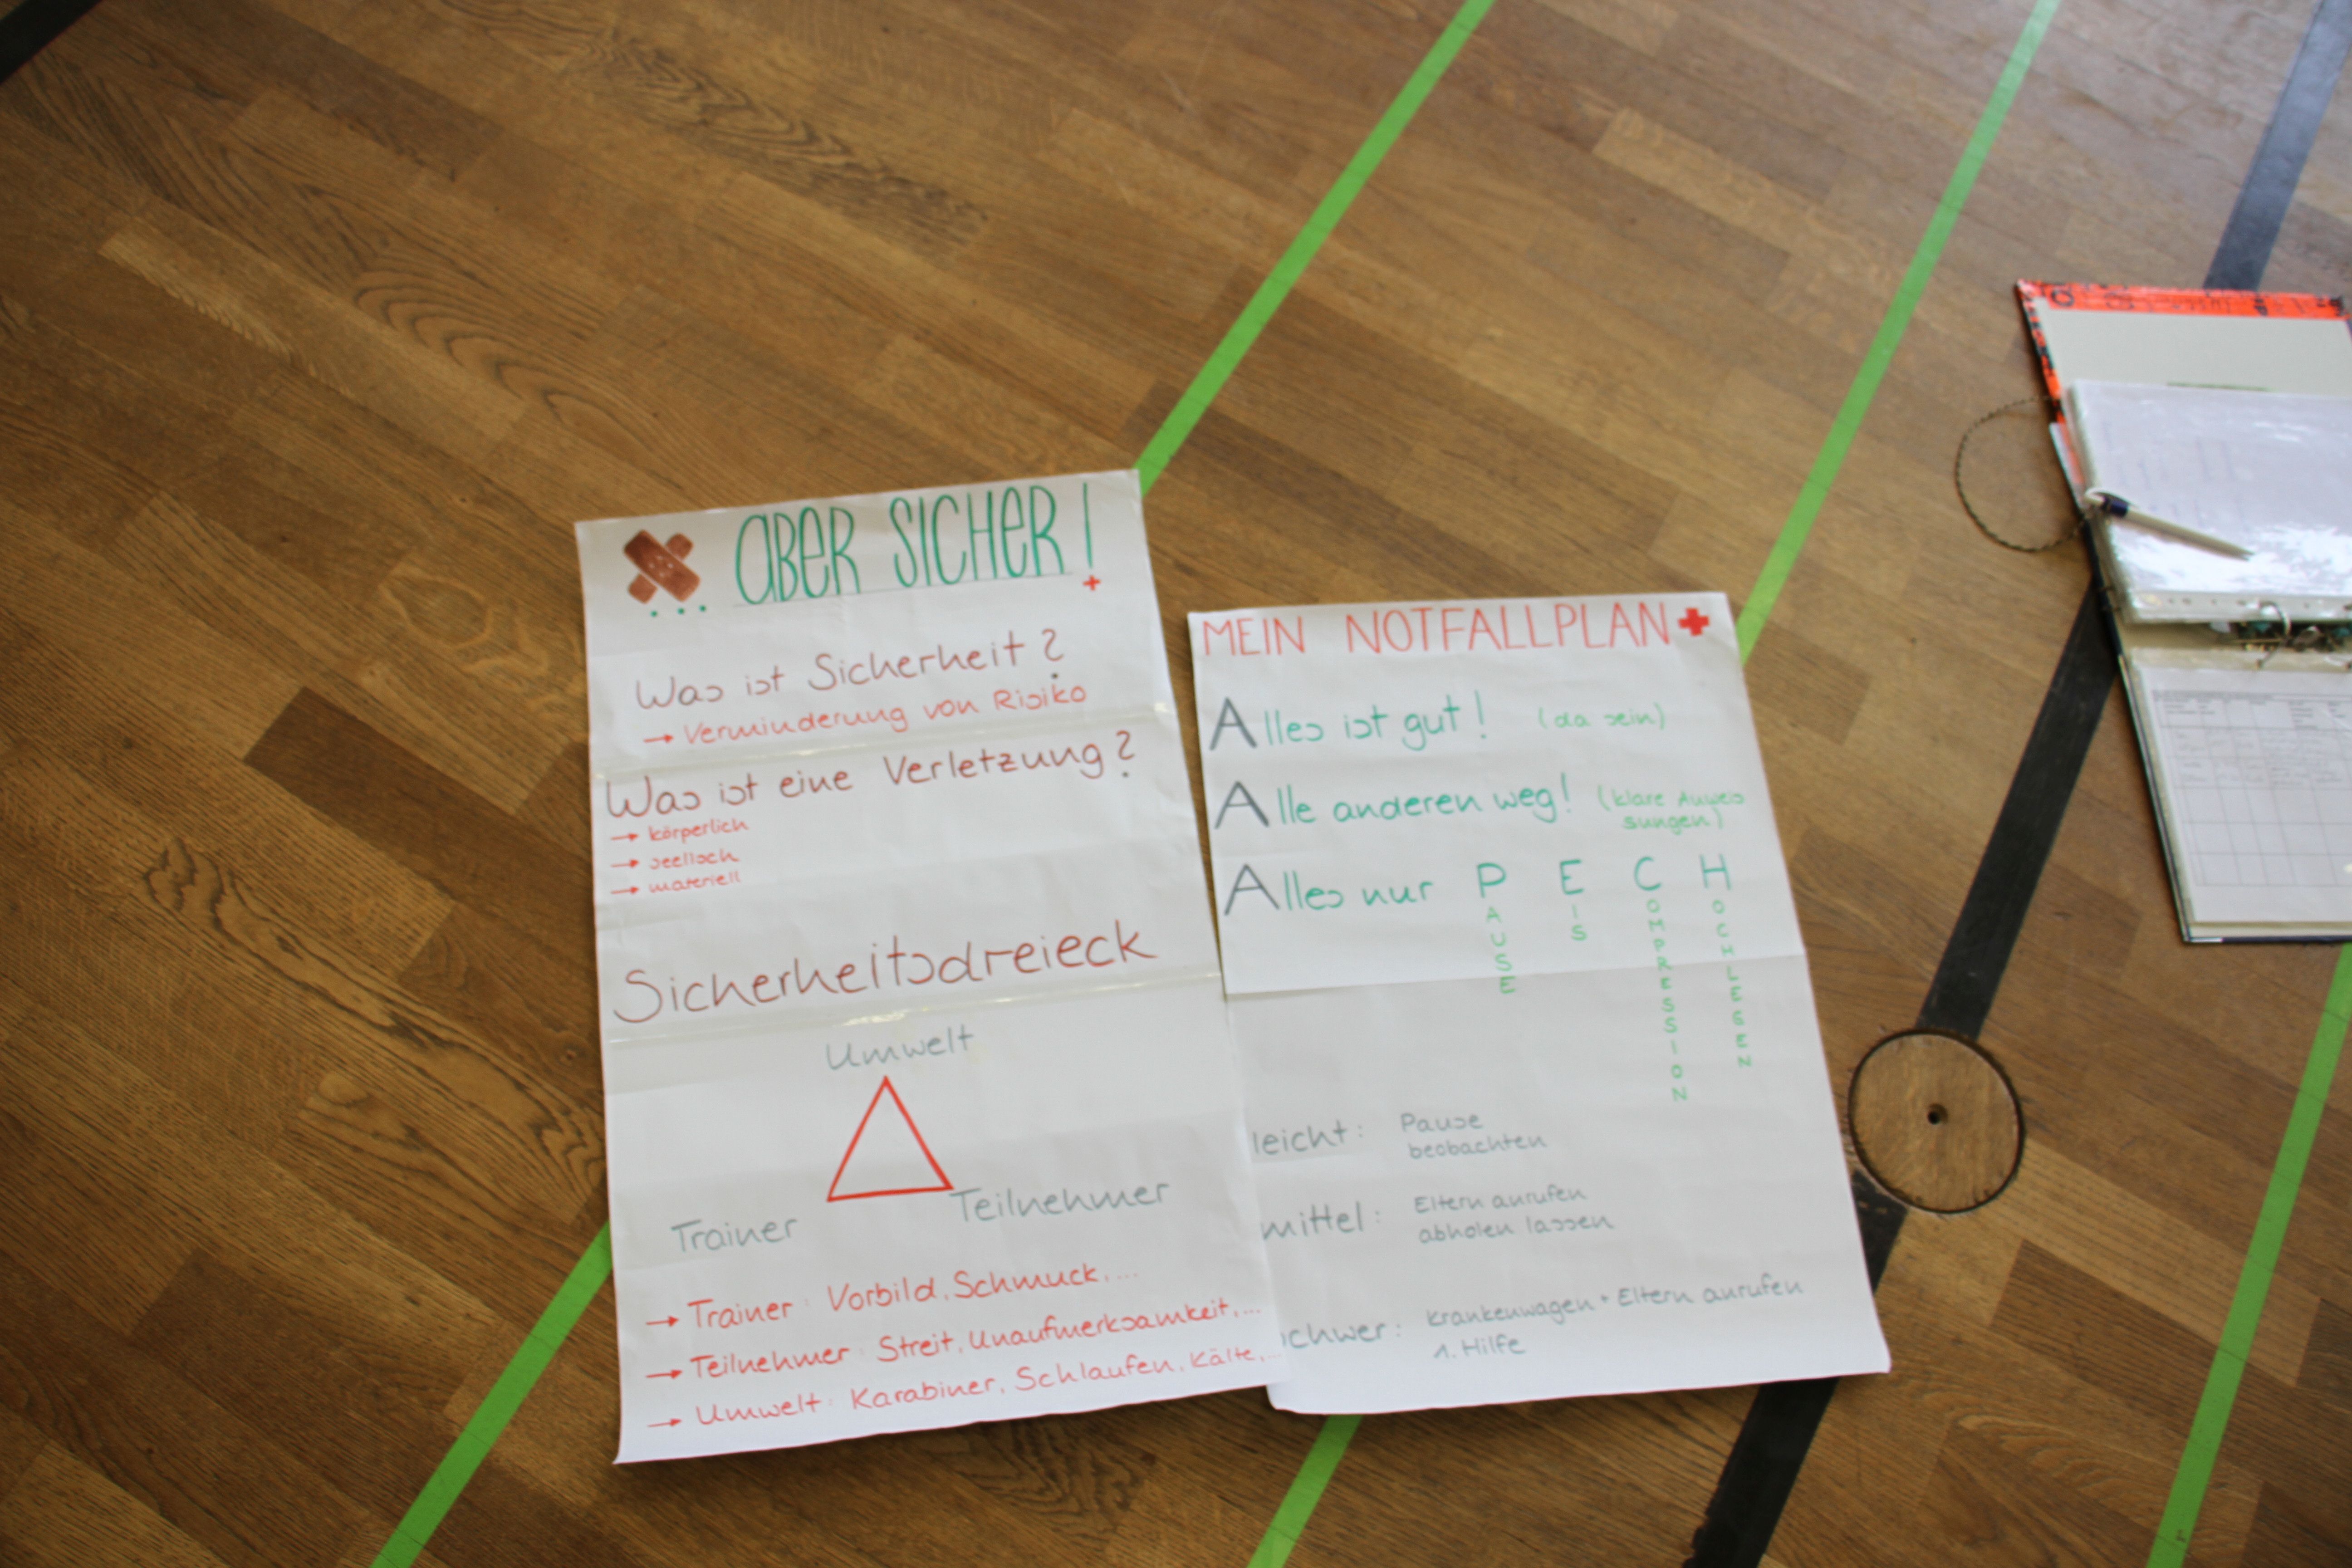 ... ABER SICHER!
Was ist Sicherheit?
→ Verminderung von Risiko
Was ist eine Verletzung?
→ körperlich
→ seelisch
→ materiell
Sicherheitsdreieck
Umwelt
Trainer
Teilnehmer
→ Trainer: Vorbild, Schmuck, ...
→ Teilnehmer: Streit, Unaufmerksamkeit, ...
→ Umwelt: Karabiner, Schlaufen, Kälte, ...
MEIN NOTFALLPLAN
Alles ist gut! (da sein)
Alle anderen weg! (klare Anweis
sungen)
Alles nur P E C H
PAUSE
EIS
COMPRESSION
HOCHLEGEN
leicht: Pause
beobachten
mittel: Eltern anrufen
abholen lassen
schwer: Krankenwagen + Eltern anrufen
1. Hilfe